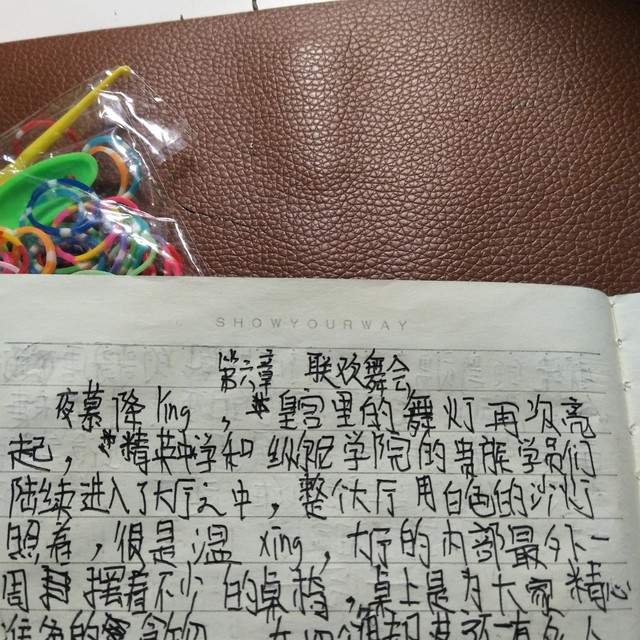 SHOWYOURWAY
第六章 联欢舞会
夜幕降ling,皇宫里的舞灯再次亮
起,精英学和纵妮学院的贵族学员们
陆续进入了大厅之中,整个大厅用白色的沙灯
照着,很是温xing,大厅的内部最外一
周摆着不少的桌椅,桌上是为大家精心
准备的食物